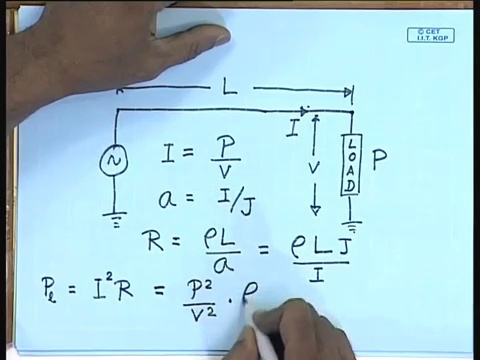 © CET
I.I.T. KGP
L
I
V
LOAD
P
~
I = P/V
a = I/J
R = ρL/a = ρLJ/I
Pₗ = I²R = P²/V² · ρ